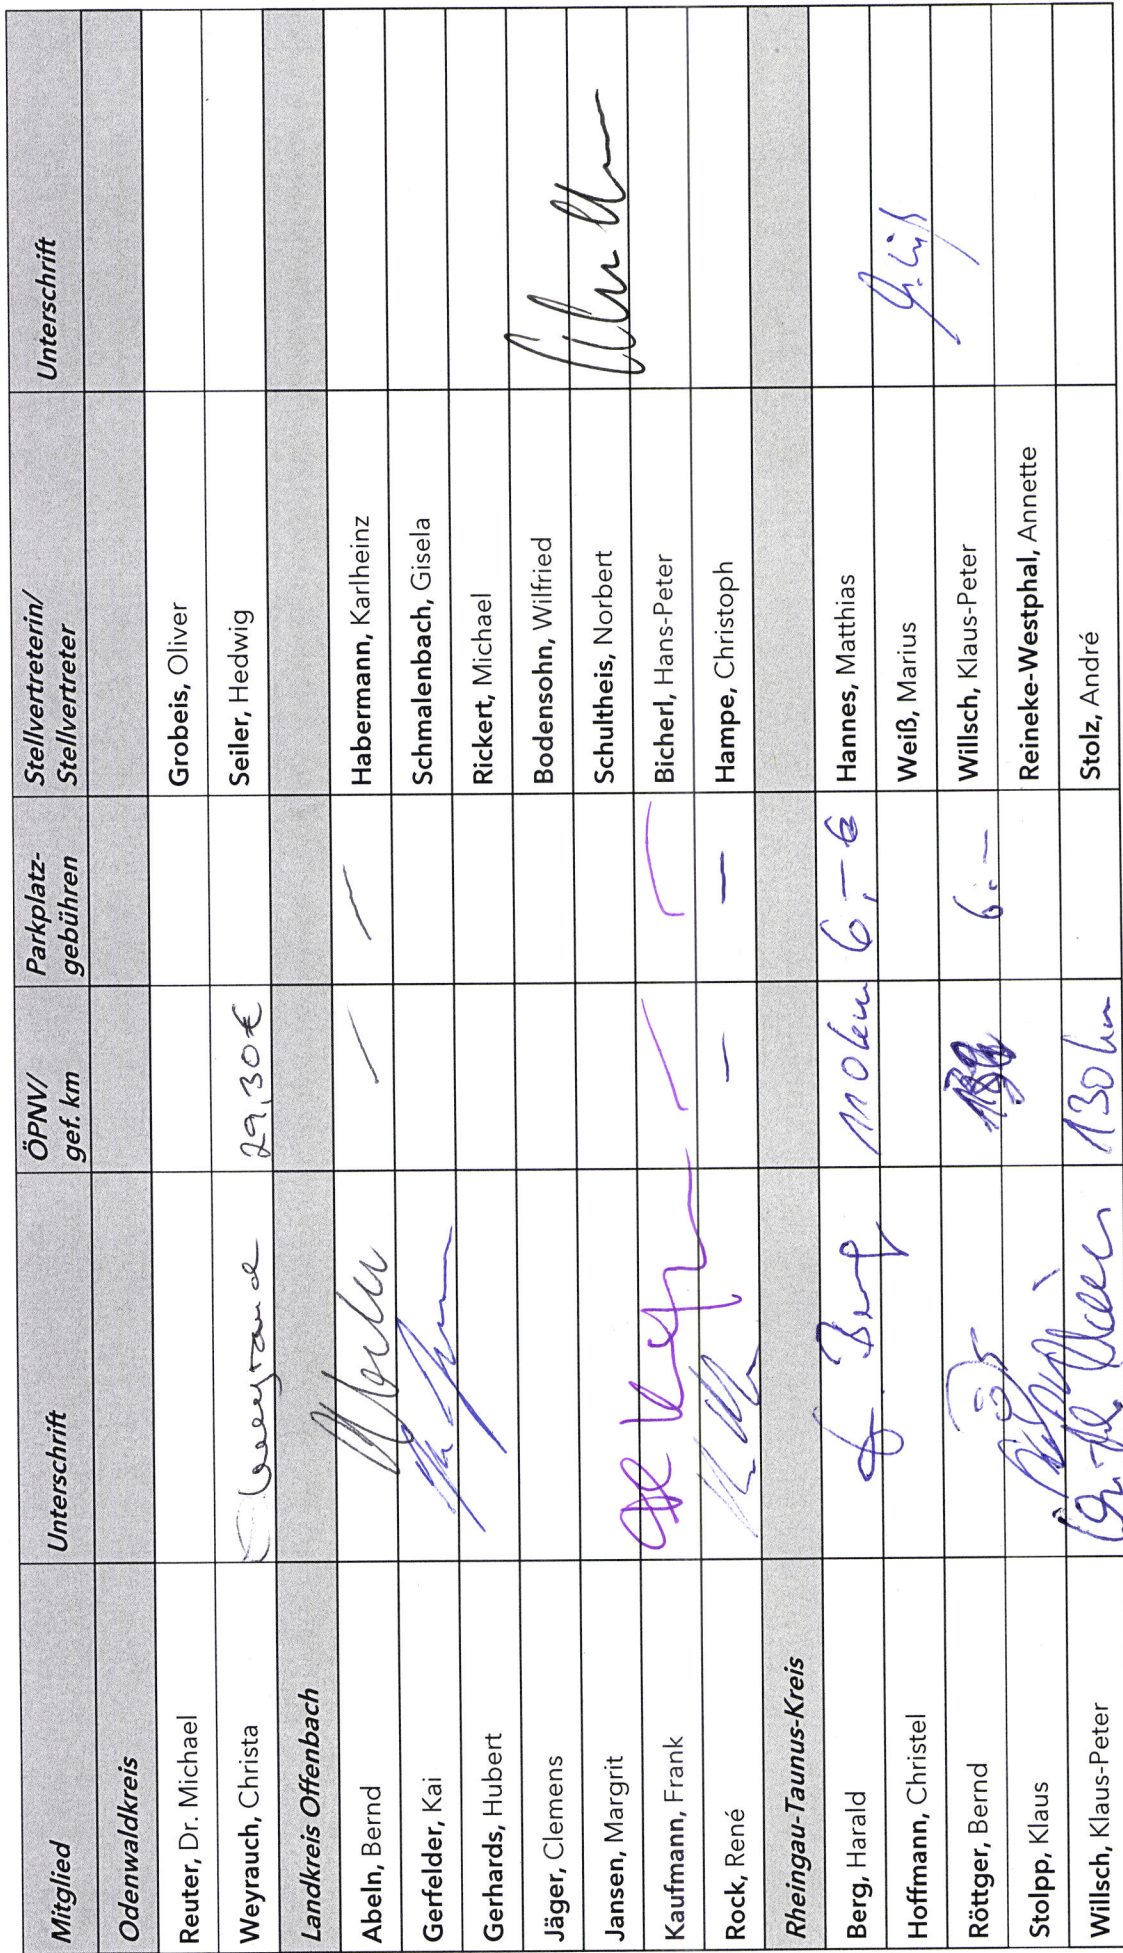 Mitglied Unterschrift ÖPNV/ gef. km Parkplatz- gebühren Stellvertreterin/ Stellvertreter Unterschrift
Odenwaldkreis
Reuter, Dr. Michael Grobeis, Oliver
Weyrauch, Christa Weyrauch 29,30 € Seiler, Hedwig
Landkreis Offenbach
Abeln, Bernd — — Habermann, Karlheinz
Gerfelder, Kai Schmalenbach, Gisela
Gerhards, Hubert Rickert, Michael
Jäger, Clemens Bodensohn, Wilfried
Jansen, Margrit Schultheis, Norbert
Kaufmann, Frank — — Bicherl, Hans-Peter
Rock, René — — Hampe, Christoph
Rheingau-Taunus-Kreis
Berg, Harald Berg 110 km 6,- € Hannes, Matthias
Hoffmann, Christel Weiß, Marius
Röttger, Bernd 6.- Willsch, Klaus-Peter
Stolpp, Klaus Reineke-Westphal, Annette
Willsch, Klaus-Peter 130 km Stolz, André